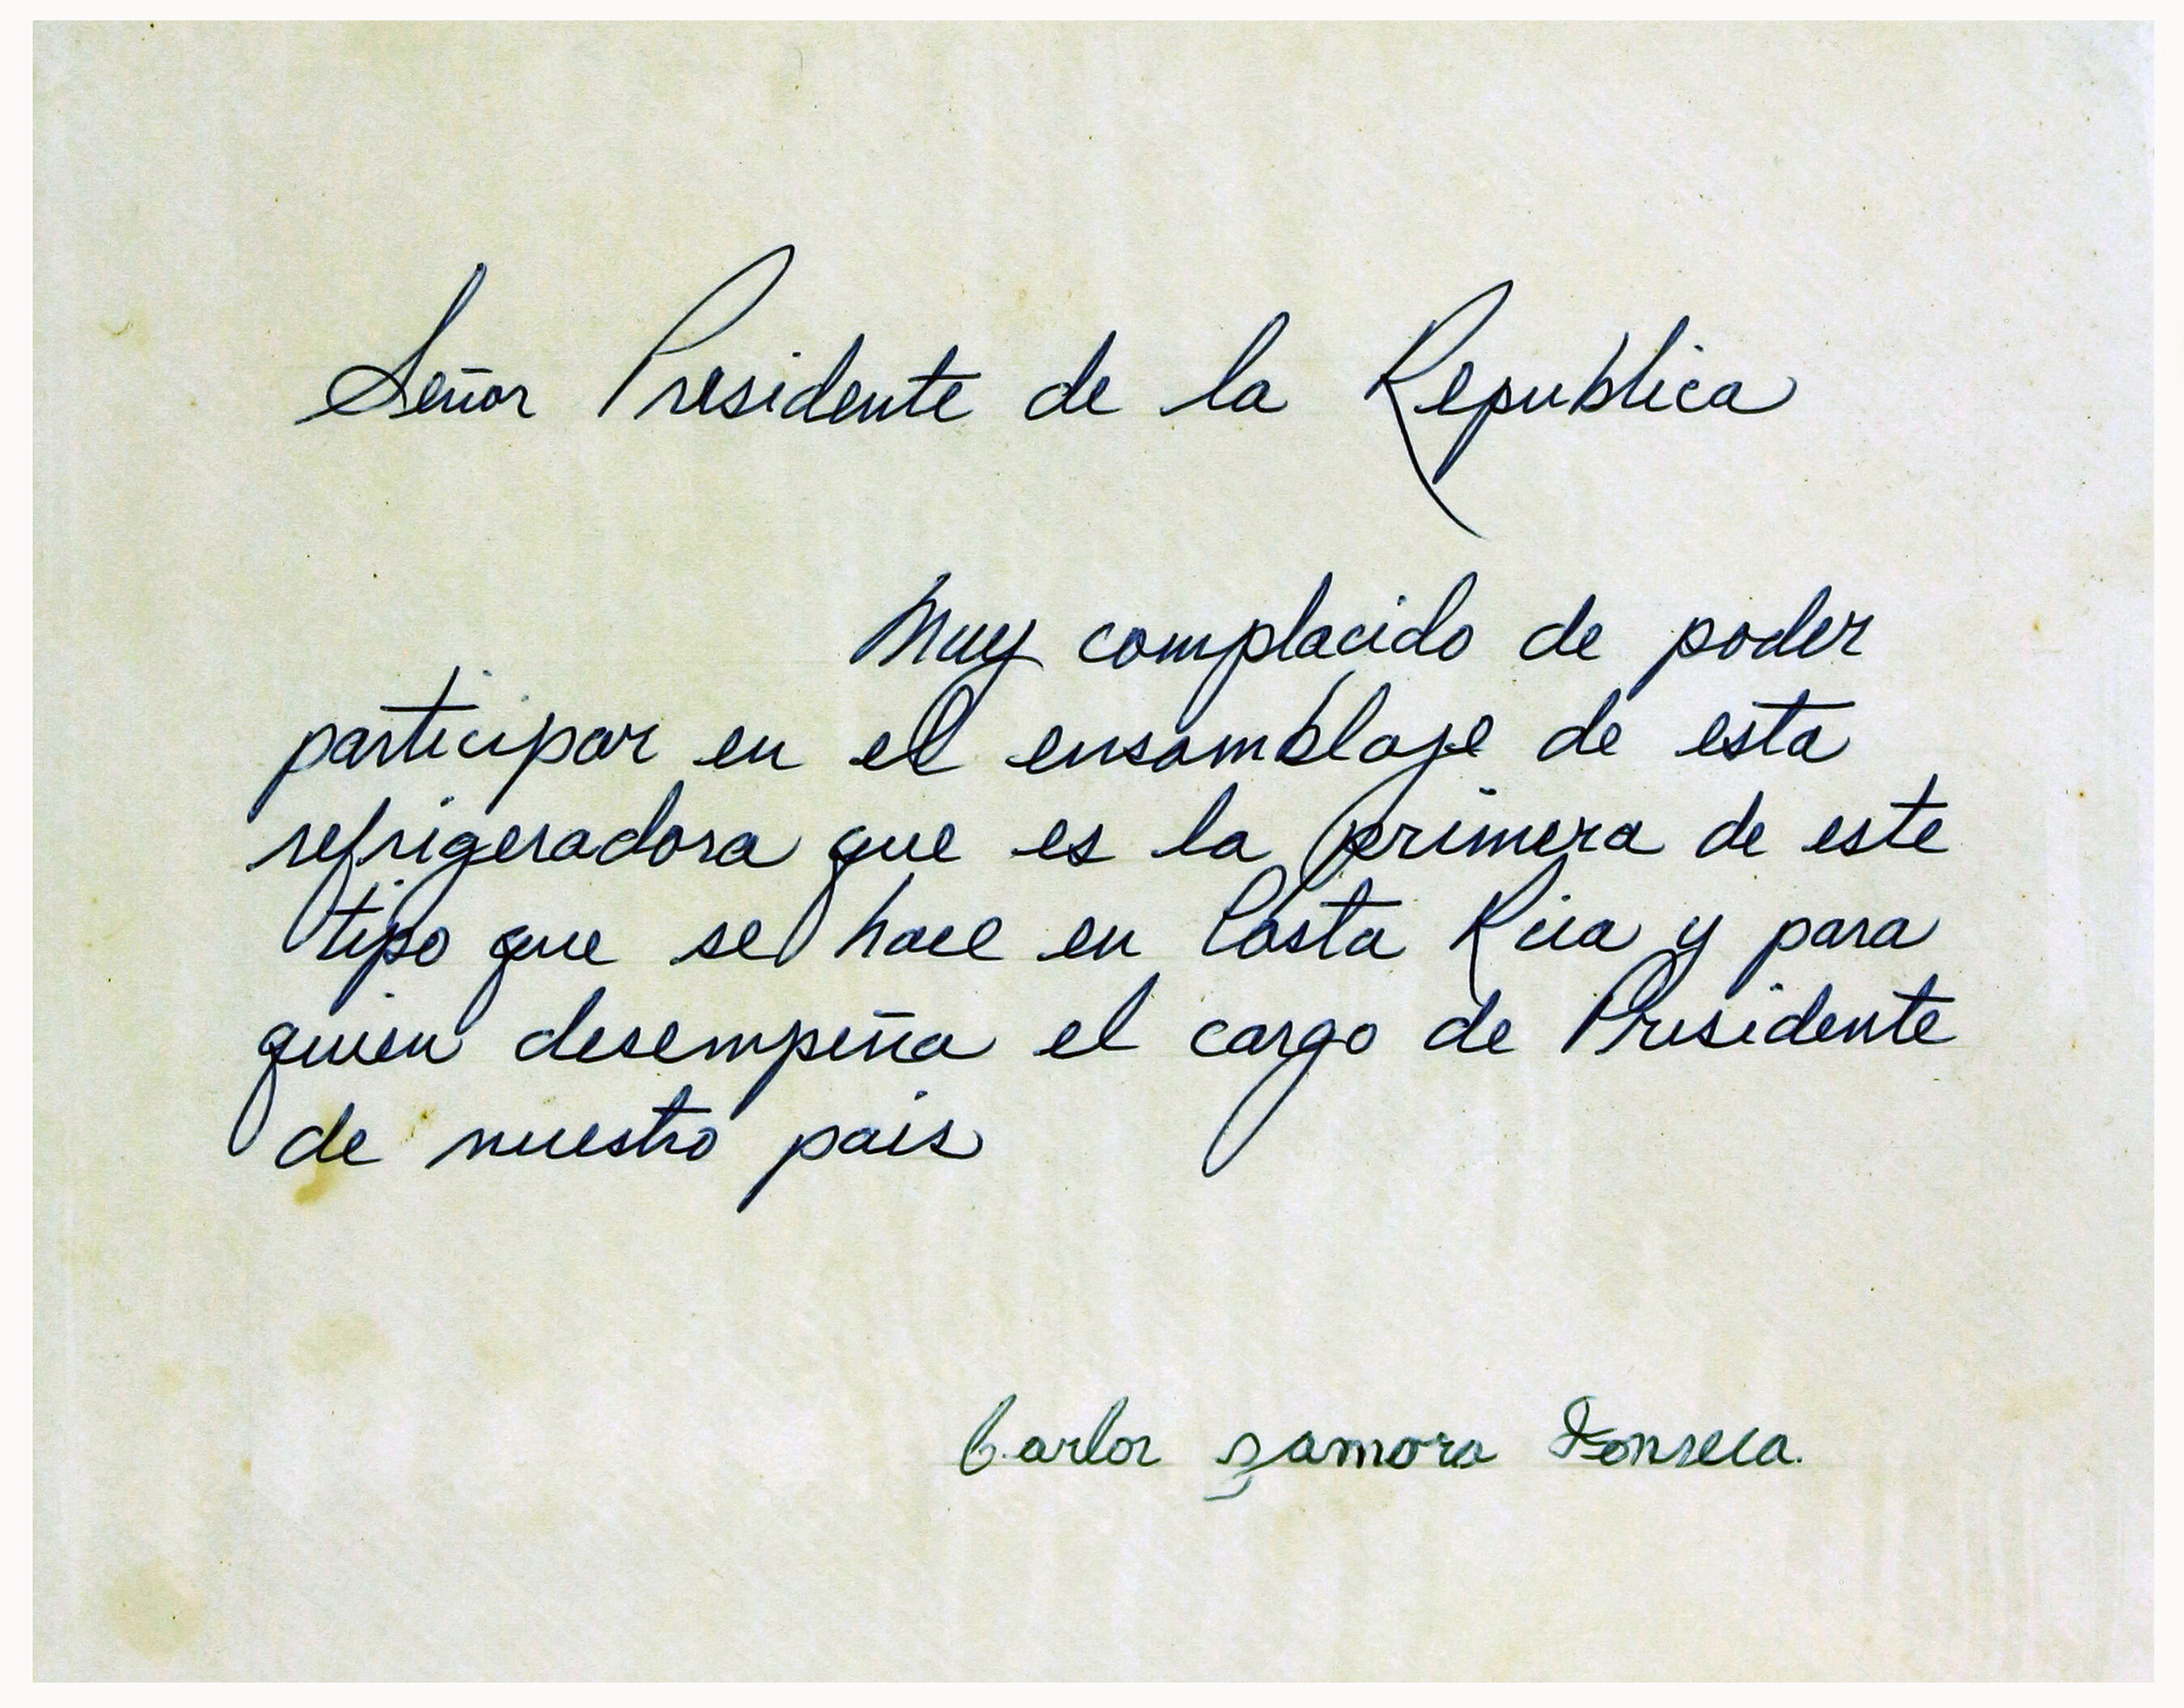 Señor Presidente de la Republica
Muy complacido de poder
participar en el ensamblaje de esta
refrigeradora que es la primera de este
tipo que se hace en Costa Rica y para
quien desempeña el cargo de Presidente
de nuestro pais
Carlos Zamora Fonseca.